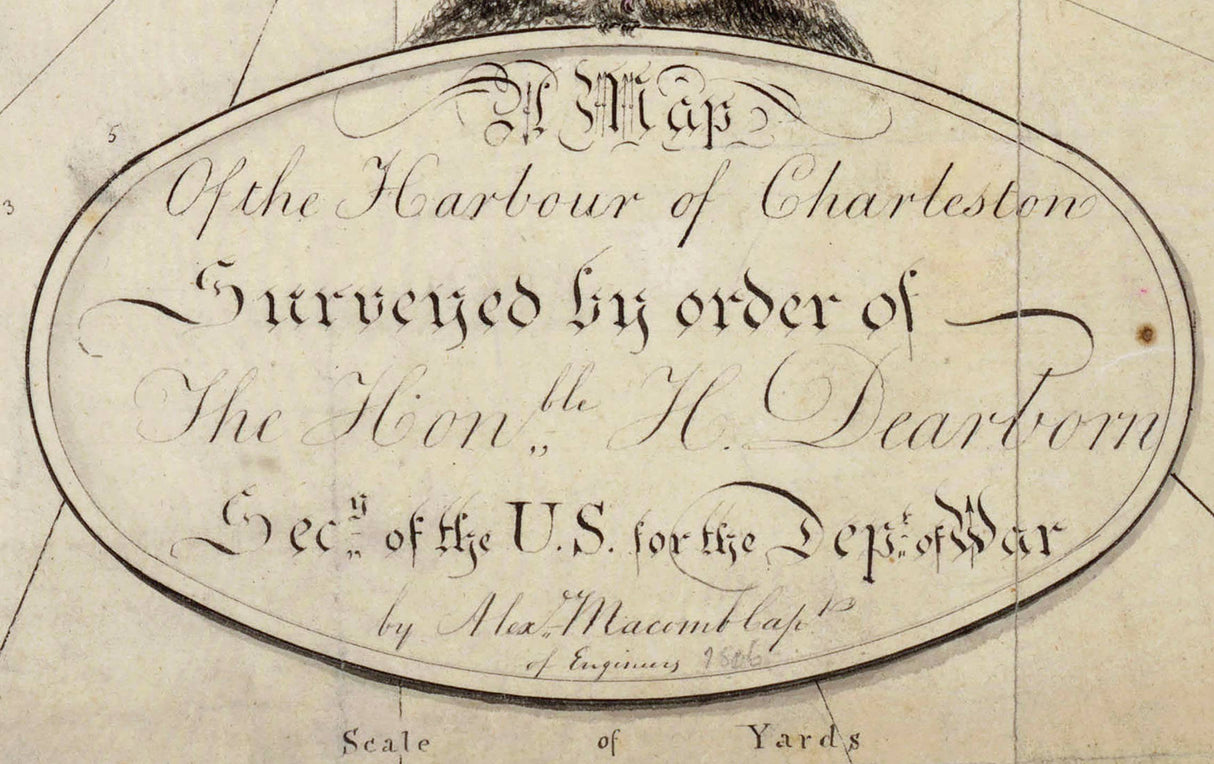 5
3
A Map
Of the Harbour of Charleston
Surveyed by order of
The Hon.ble H. Dearborn
Sec.y of the U.S. for the Dep.t of War
by Alex.r Macomb Cap.t
of Engineers 1806
Scale of Yards